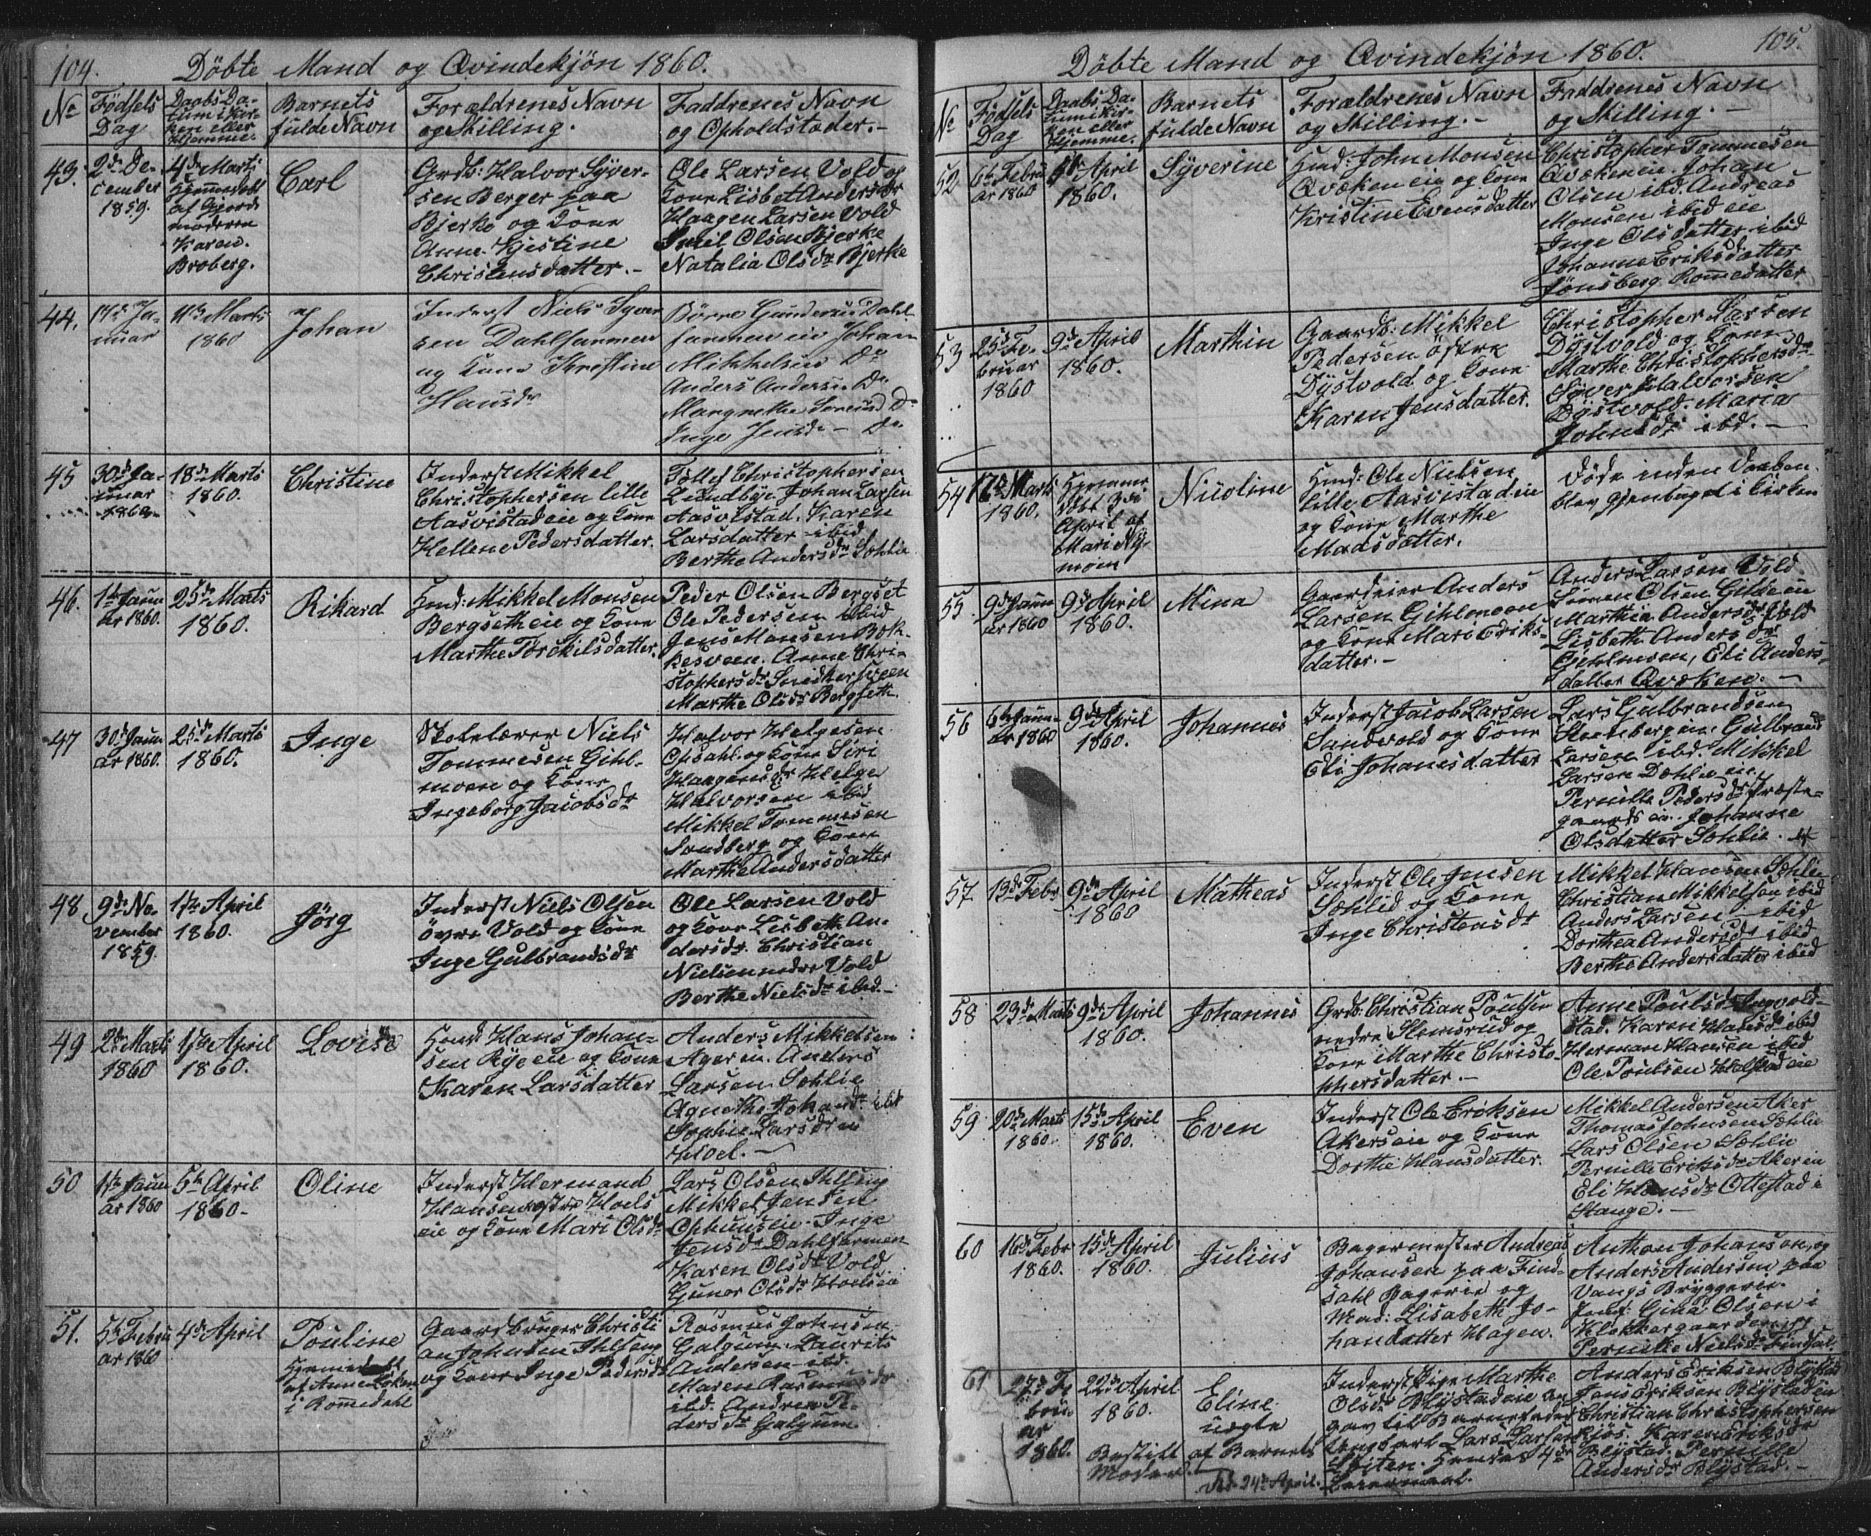 104.
Döbte Mand og Qvindekjön 1860.
No
Födsels
Dag
Daabs Da-
tum i Kir-
ken eller
Hjemme.
Barnets
fulde Navn
Forældrenes Navn
og Stilling.
Faddrenes Navn
og Opholdsteder.-
43.
2de De-
cember
1859.
4de Marts
Hjemmedöbt
af Gjord-
moderen
Karen
Broberg.
Carl
Grdb: Halvor Syver-
sen Berger paa
Bjerke og Kone
Anne Kjestine
Christensdatter.-
Ole Larsen Vold og
Kone Lisbet Andersdr
Haagen Larsen Vold
Emil Olsen Bjerke
Natalia Olsdr Bjerke
44.
17de Ja-
nuar
11te Marts
1860
Johan
Inderst Niels Syver
sen Dahlfarmen
og Kone Krestine
Hansdr
Börre Gunderus Dahl-
farmen eie Johan
Mikkelsen Do
Anders Andersen Do
Margrethe Sorensd Do
Inge Jensd - Do
45
30de Ja-
nuar
1860
18de Marts
1860.
Christine
Inderst Mikkel
Christophersen lille
Aasvistadeie og Kone
Hellene Pedersdatter.
Tollef Christophersen
Lundbye. Johan Larsen
Aasvistad. Karen
Larsdatter ibid
Berthe Andersdr Sohlie
46.
1te Janu
ar 1860.
25de Marts
1860.
Rikard
Husd: Mikkel Monsen
Bergsetheie og Kone
Marthe Törkilsdatter.
Peder Olsen Bergset
Ole Pedersen ibid
Jens Monsen Bok-
besveen. Anne Chri-
stophersdr Snidkersveen
Marthe Olsdr Bergseth.
47
30de Janu
ar 1860.
25de Marts
1860.
Inge
Skolelærer Niels
Tommesen Gihl-
moen og Kone
Ingeborg Jacobsdr
Halvor Helgesen
Opsahl og Kone Siri
Haagensdr Helge
Halvorsen ibid
Mikkel Tommesen
Sandberg og Kone
Marthe Andersdatter
48
9de No-
vember
1859.
1ste April
1860.
Jörg
Inderst Niels Olsen
övre Vold og Kone
Inge Gulbrandsdr
Ole Larsen Vold
og Kone Lisbeth An-
dersdr. Christian
Nielsen nedre Vold
Berthe Nielsdr ibid.-
49
2de Marts
1860
1ste April
1860.
Lovise
Husd: Hans Johan-
sen Rye eie og Kone
Karen Larsdatter
Anders Mikkelsen
Ager en. Anders
Larsen Sohlie
Agnethe Johansdr ibid
Sophie Larsdr en
Hoel.-
50
1te Janu
ar 1860
5te April
1860.-
Oline
Inderst Herman
Hansen östre Hoels
eie og Kone Mari Olsdr
Lars Olsen Ihlseng
Mikkel Jensen
Ophuuseie. Inge
Jensdr Dahlfarmen
Karen Olsdr Vold
Gunor Olsdr Hoelseie
51.
5te Febru
ar 1860
4de April
Pouline
Hjemmedöbt
af Anne Löken
i Romedahl
Gaardbruger Christi
an Johnsen Ihlseng
og Kone Inge Pedersdr
Rasmus Johnsen
Galgum. Laurits
Andersen ibid.
Maren Rasmusdr
ibid. Andrea Pe-
dersdr Galgum.
105.
Döbte Mand og Qvindekjön 1860.
No
Födsels
Dag
Daabs Da-
tum i Kir-
ken eller
Hjemme.
Barnets
fulde Navn
Forældrenes Navn
og Stilling.-
Faddrenes Navn
og Stilling.-
52
6te Febru
ar 1860
April
1860.
Syverine
Husd: John Monsen
Qvæken eie og Kone
Kristine Evensdatter
Christopher Tommesen
Qvækeneie. Johan
Olsen ibd. Andreas
Monsen ibid eie
Inge Olsdatter ibid
Johanne Eriksdatter
Jönsberg Romedatter
53
25de Fe-
bruar
1860
9de April
1860.
Marthin
Gaardb: Mikkel
Pedersen östre
Dystvold og Kone
Karen Jensdatter.
Christopher Larsen
Dystvold og Kone
Marthe Christophersdr
Syver Halvorsen
Dystvold. Maria
Johnsdr ibd.-
54
12te Marts
1860.
Hjemme
döbt 3de
April af
Mari Ny
moen
Nicoline
Husd: Ole Nielsen
lille Aasvistadeie
og Kone Marthe
Madsdatter.
Döde inden Daaben
blev gjentaget i Kirken
55
9de Janu
ar 1860
9de April
1860.
Mina
Gaardeier Anders
Larsen Gihlmoen
og Kone Mari Eriks-
datter.-
Anders Larsen Vold
Simen Olsen Gilde eie
Marthia Andersdr Vold
Lisbeth Anders dr
Gjehlmoen, Eli Anders-
datter Qvæken.-
56
6te Janu-
ar 1860
9de April
1860.
Johannes
Inderst Jacob Larsen
Sundvold og Kone
Eli Johanesdatter
Lars Gulbrandsen
Steenberg en. Gulbrand
Larsen ibd. Mikkel
Larsen Dæhlie en
Pernille Pedersdr Præste-
gaards en. Johanne
Olsdatter Sohlie.
57
13de Febr
9de April
1860
Matheas
Inderst Ole Jensen
Sæhlid og Kone
Inge Christensdr
Mikkel Hansen Sohlie
Christian Mikkelsen ibid
Anders Larsen ibid
Dorthea Andersdr ibid
Berthe Andersdatter ibid
58
23de Marts
9de April
1860.
Johannes
Grdb: Christian Poulsen
nedre Slemsrud og
Kone Marthe Christo-
phersdatter.-
Anne Poulsdr Ingvold-
stad. Karen Hansdr ibid
Herman Hansen ibid
Ole Poulsen Halstad eie
59
20de Marts
1860.
15de April
1860.
Even
Inderst Ole Eriksen
Akerseie og Kone
Dorthe Hansdatter.
Mikkel Andersen Aker
Thomas Johnsen Sohlie
Lars Olsen Sæhlie
Pernille Eriksdr Aker en
Eli Hansdr Ottestad i
Stange.-
60
16de Febr
1860.
15de April
1860.
Julius
Bagermester Andreas
Johansen paa Find-
sahl Bageri og
Mad: Lisabeth Jo-
handatter Hagen.
Anthon Johanson, og
Anders Andersen paa
Vangs Bryggerie.
Jmfr: Gina Olsen i
Klokkergaarden og
Pernille Nielsdr Findsal.
61
27de Fe
bru-
ar
1860.
22de April
1860.
Eline
uægte
Bestilt af Barnets
Moder.
Död 24de April.
Inderst Pige Marthe
Olsdr Blystadeie an
gav til Barnefader
Ungkarl Lars Larsen
Löiten. Hendes 4de
Leiermaal.
Anders Eriksen Blystad
Jens Eriksen Blystad eie
Christian Christophersen
Kiös. Karen Eriksdr
Blystad. Pernille
Andersdr Blystad.-